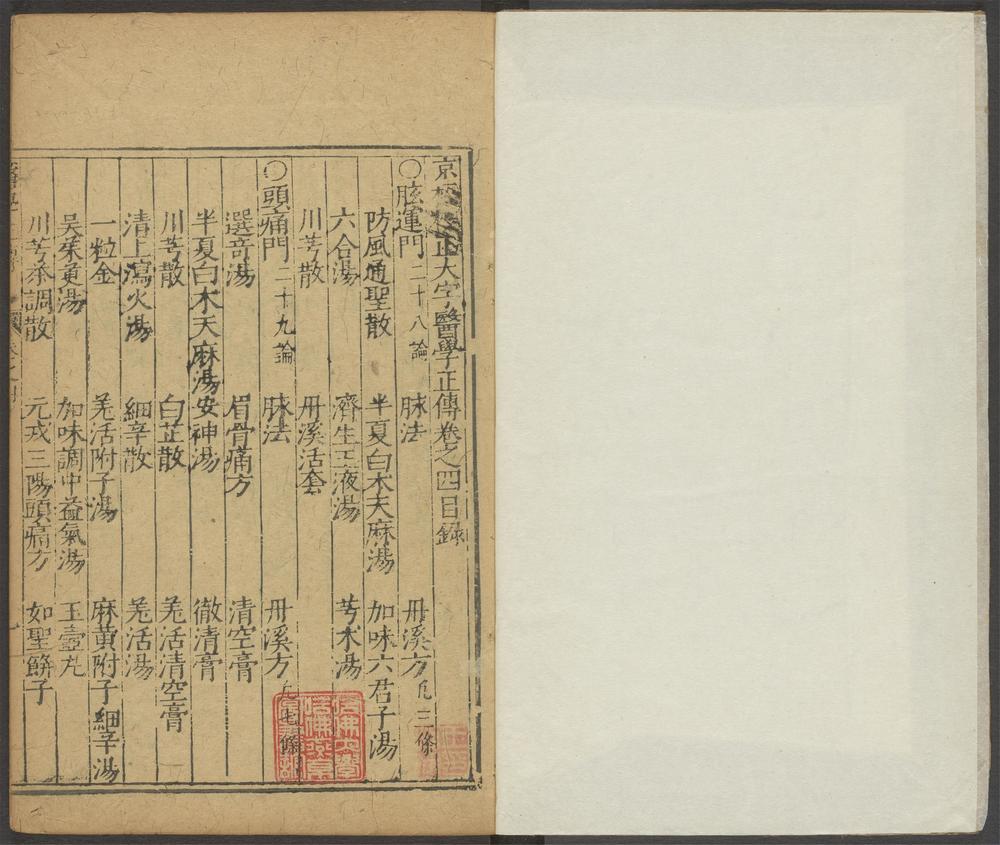 京板校正大字醫學正傳卷之四目錄
○眩運門二十八論 脉法 丹溪方凡三條
防風通聖散 半夏白朮天麻湯 加味六君子湯
六合湯 濟生玉液湯 芎朮湯
川芎散 丹溪活套
○頭痛門二十九論 脉法 丹溪方凡七條
選竒湯 眉骨痛方 清空膏
半夏白朮天麻湯 安神湯 徹清膏
川芎散 白芷散 羌活清空膏
清上瀉火湯 細辛散 羌活湯
一粒金 羌活附子湯 麻黄附子細辛湯
吴茱萸湯 加味調中益氣湯 玉壼丸
川芎茶調散 元戎三陽頭痛方 如聖餅子